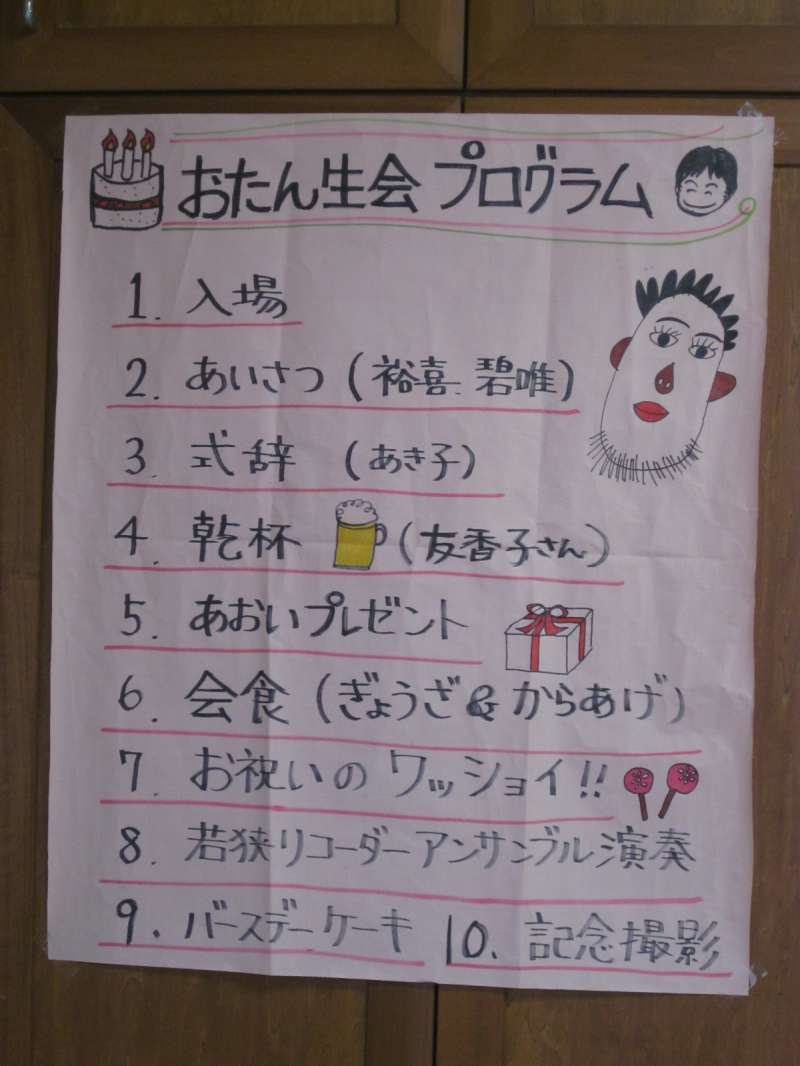 おたん生会 プログラム
1. 入場
2. あいさつ (裕喜. 碧唯)
3. 式辞 (あき子)
4. 乾杯 (友香子さん)
5. あおいプレゼント
6. 会食 (ぎょうざ & からあげ)
7. お祝いの ワッショイ!!
8. 若狭リコーダーアンサンブル演奏
9. バースデーケーキ 10. 記念撮影